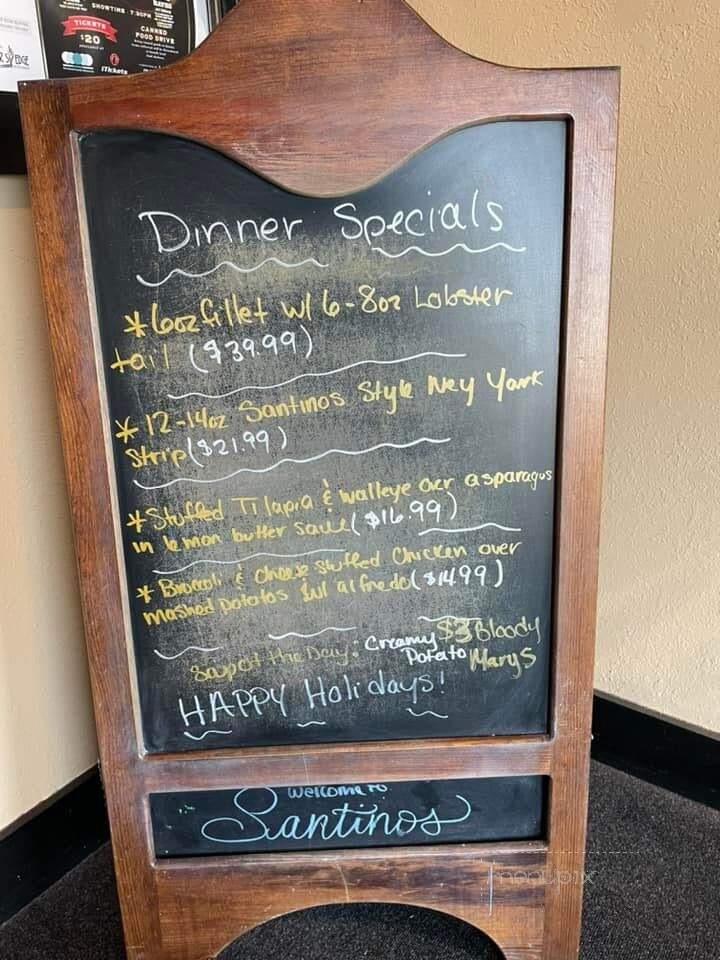 SHOWTIME · 7:30PM
TICKETS
$20
CANNED
FOOD DRIVE
iTickets
EDGE
Dinner Specials
* 6oz fillet w/ 6-8oz Lobster
tail ($39.99)
* 12-14oz Santinos Style Ney York
Strip ($21.99)
* Stuffed Tilapia & walleye over asparagus
in lemon butter sauce ($16.99)
* Broccoli & cheese stuffed Chicken over
mashed potatos w/ alfredo ($14.99)
Soup of the Day: Creamy $3 Bloody
Potato Marys
HAPPY Holidays!
welcome to
Santinos
menupix